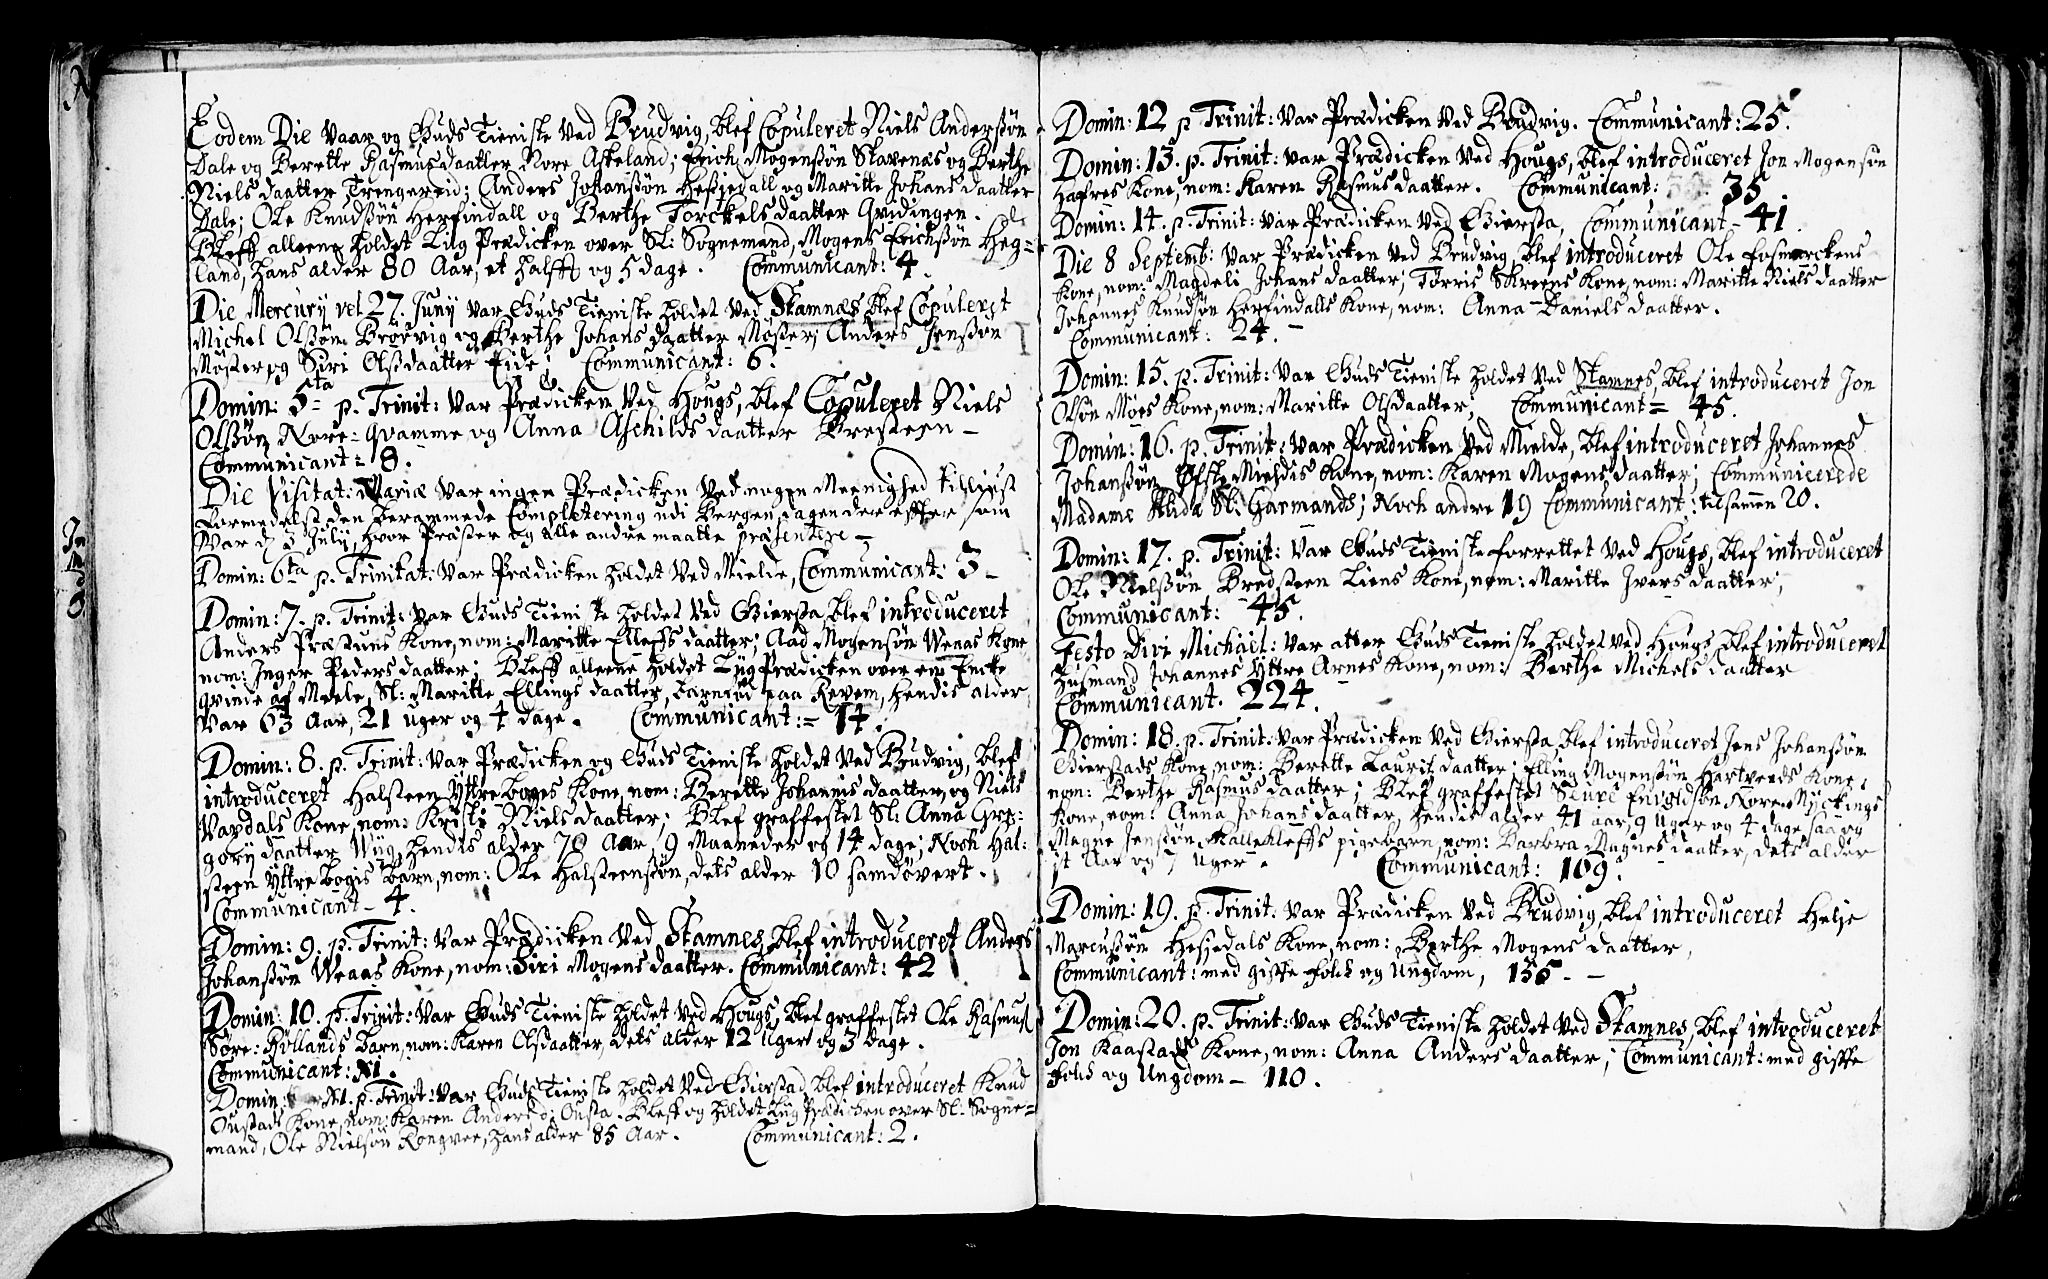 Eodem Die vaar og Guds Tieniste ved Brudvig, blef Copuleret Niels Anderssøn
Dale og Berette Rasmusdaatter Nore Askeland; Erich Mogenssøn Stavenæs og Berthe
Nielsdaatter Trengereid; Anders Johanssøn Hesjedall og Maritte Johansdaatter
Dale; Ole Knudssøn Herfindall og Berthe Torckelsdaatter Qvidingen.
Bleff alleene holdet Liig Prædicken over Sl: Sognemand, Mogens Erichssøn Heg=
land, hans alder 80 Aar, et halfft og 5 dage. Communicant: 4.
Die Mercurij vel 27. Junij var Guds Tieniste holdet ved Stamnæs blef Copuleret
Michel Olssøn Brørvig og Berthe Johansdaatter Møster; Anders Jenssøn
Møster og Siri Olssdaatter Eide; Communicant: 6.
Domin: 5ta p. Trinit: var Prædicken ved Hougs, blef Copuleret Niels
Olssøn Nore=Qvamme og Anna Aschildsdaatter Bresteen -
Communicant= 8.
Die Visitat: Mariæ var ingen Prædicken ved nogen Meenighed
formedelst den berammede Completering udi Bergen, dagen der effter som
var d. 3 Julij, hvor Præster og alle andre maatte præsentere -
Domin: 6ta p. Trinitat: var Prædicken holdet ved Mielde, Communicant: 3 -
Domin: 7. p. Trinit: var Guds Tieniste holdet ved Giersta, blef introduceret
Anders Præstuns Kone, nom: Maritte Elleffsdaatter; Aad Mogenssøn Weaas Kone
nom: Inger Pedersdaatter; Bleff alleene holdet Liig Prædicken over en Encke
qvinde af Meele, Sl: Maritte Ellingsdaatter, barnfød paa Revem, hendis alder
var 63 Aar, 21 uger og 4 dage. Communicant:= 14.
Domin: 8. p. Trinit: var Prædicken og Guds Tieniste holdet ved Brudvig, blef
introduceret Halsteen Yttre boges Kone, nom: Berette Johannisdaatter, og Niels
Vardals Kone, nom: Kristi Nielsdaatter; Blef graffestet Sl: Anna Gre=
gorij daatter Wiig, hendis alder 70 Aar, 9 Maaneder og 14 dage; Noch Hal=
steen Yttre bogis barn, nom: Ole Halsteenssøn, dets alder 10 samdøvert.
Communicant - 4.
Domin: 9. p. Trinit: var Prædicken ved Stamnes, blef introduceret Anders
Johanssøn Weaas Kone, nom: Siri Mogensdaatter. Communicant: 42
Domin: 10. p. Trinit: var Guds Tieniste holdet ved Hougs, blef graffestet Ole Rasmuss:
Søre=Røllands barn, nom: Karen Olsdaatter, dets alder 12 Uger og 3 dage.
Communicant: 11.
Domin: 11. p. Trinit: var Guds Tieniste holdet ved Gierstad, blef introduceret Knud
Oustads Kone, nom: Karen Andersd: Ousta. Bleff og holdet Liig Prædicken over Sl: Sogne=
mand, Ole Nielssøn Rongvee, hans alder 85 Aar. Communicant: 2.
Domin: 12 p. Trinit: var Prædicken ved Brudvig. Communicant: 25.
Domin: 13. p. Trinit: var Prædicken ved Hougs, blef introduceret Jon Mogensøn
Hafres Kone, nom: Karen Rasmusdaatter. Communicant: 35
Domin: 14. p. Trinit: var Prædicken ved Giersta, Communicant - 41.
Die 8 Septemb: var Prædicken ved Brudvig, blef introduceret Ole Fosmerckens
Kone, nom: Magdeli Johansdaatter; Torris Skreens Kone, nom: Maritte Nielsdaatter
Johannes Knudsøn Herfindalls Kone, nom: Anna Danielsdaatter.
Communicant: 24. -
Domin: 15. p. Trinit: var Guds Tieniste holdet ved Stamnes, blef introduceret Jon
Olsøn Møes Kone, nom: Maritte Olsdaatter, Communicant= 45.
Domin: 16. p. Trinit: var Prædicken ved Mielde, blef introduceret Johannes
Johanssøn Øffste Mieldis Kone, nom: Karen Mogensdaatter; Communicerede
Madame Alida Sl: Garmands; Noch andre 19 Communicant: tilsamen 20.
Domin: 17. p. Trinit: var Guds Tieniste forrettet ved Hougs, blef introduceret
Ole Nielssøn Bredsteen Liens Kone, nom: Maritte Iversdaatter,
Communicant: 45.
Festo Divi Michaël: var atter Guds Tieniste holdet ved Hougs, blef introduceret
Husmand Johannes Yttre Arnes Kone, nom: Berthe Michelsdaatter
Communicant. 224.
Domin: 18. p. Trinit: var Prædicken ved Giersta, blef introduceret Jens Johanssøn
Gierstads Kone, nom: Berette Lauritzdaatter; Elling Mogenssøn Hartveeds Kone,
nom: Berthe Rasmusdaatter; Blef graffestet Siure Envoldsøn Nore Myckings
Kone, nom: Anna Johansdaatter, hendis alder 41 aar, 9 Uger og 4 dage, saa og
Magne Jenssøn Kalleklefs pigebarn, nom: Barbra Magnesdaatter, dets alder
it Aar og 7 Uger. Communicant: 109.
Domin: 19. p. Trinit: var Prædicken ved Brudvig, blef introduceret Helje
Marcussøn Hesjedals Kone, nom: Berthe Mogensdaatter,
Communicant: med giffte Folck og Ungdom, 155. -
Domin: 20. p. Trinit: var Guds Tieniste holdet ved Stamnes, blef introduceret
Jon Kaastads Kone, nom: Anna Andersdaatter; Communicant: med giffte
Folck og Ungdom - 110.